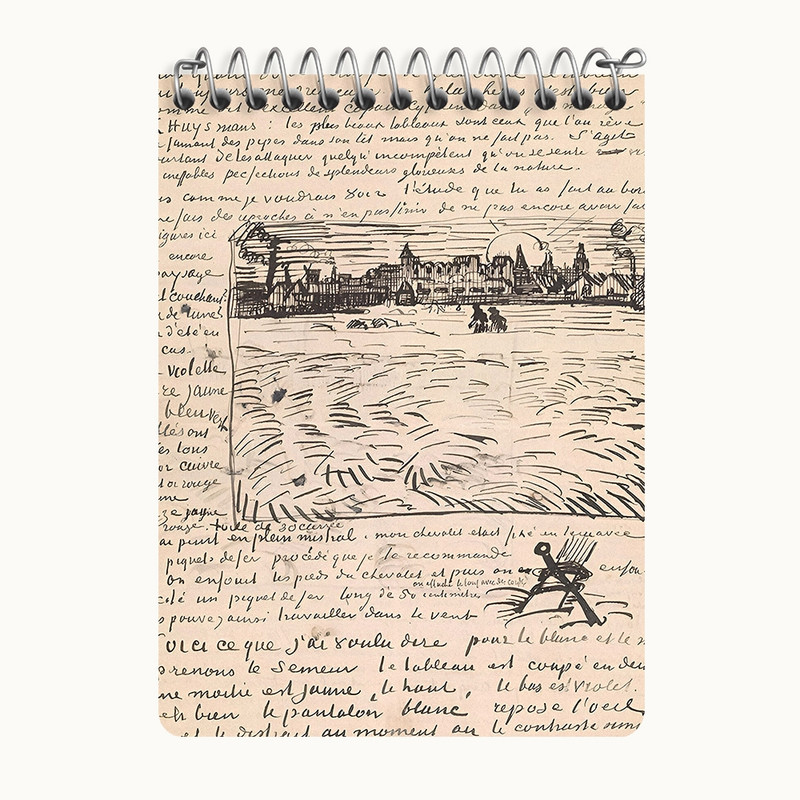 Huysmans : les plus beaux tableaux sont ceux que l'on rêve
fumant des pipes dans son lit mais qu'on ne fait pas. S'agit
pourtant de les attaquer quelqu'incompétent qu'on se sente
ineffables perfections de splendeurs glorieuses de la nature.
comme je voudrais voir l'étude que tu as fait au bor
ne fais des reproches à n'en pas finir de ne pas encore avoir fai
figures ici
encore
paysage
couchant?
de lune?
d'été en
cas.
violette
re jaune
bleu vert
blés ont
les tons
or cuivre
or rouge
jaune
rouge. toile de 30 carrée
peint en plein mistral, mon chevalet était fixé en terre avec
piquets de fer procédé que je te recommande
on enfouit les pieds du chevalet et puis on enfon
on attache le tout avec des cordes
côté un piquet de fer long de 50 centimètres
pouvez ainsi travailler dans le vent
Voici ce que j'ai voulu dire pour le blanc et le n
prenons le Semeur le tableau est coupé en deu
une moitié est jaune, le haut, le bas est violet.
eh bien le pantalon blanc repose l'oeil
et le distrait au moment où le contraste simu